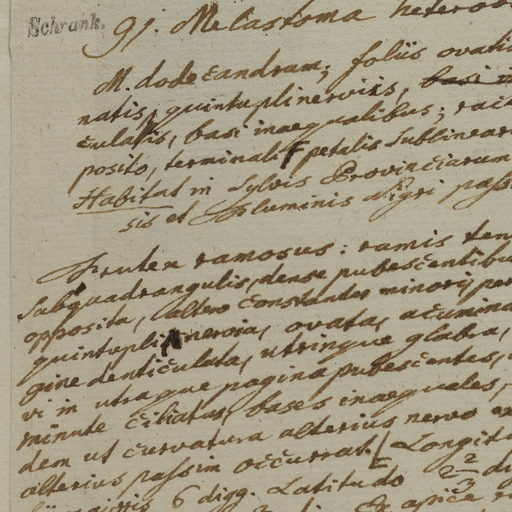 Schrank.
91. Melastoma hetero
M. dodecandrum; foliis ovatis
natis, quintuplinerviis, basi
culatis, basi inaequalibus;
posito, terminali, petalis sublinear
Habitat in Sylvis Provinciarum
sis et Fluminis Nigri pass
Frutex ramosus: ramis ten
subquadrangulis, dense pubescentibu
opposita, altero constanter minori,
quintuplinervia, ovata, acumina
gine denticulata, utrinque glabra,
vi in utraque pagina pubescentes,
minute ciliatus, bases inaequales,
dem ut curvatura alterius nervo
alterius passim occurrat. Longitu
majoris 6 digg. Latitudo 2 2/3
apice